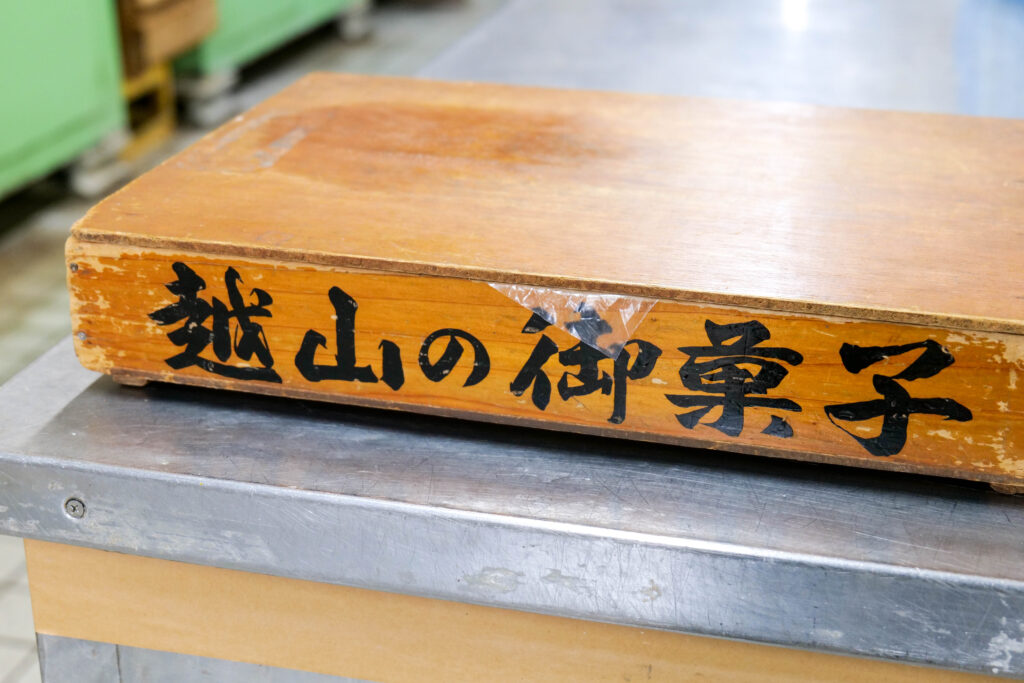 越山の御菓子